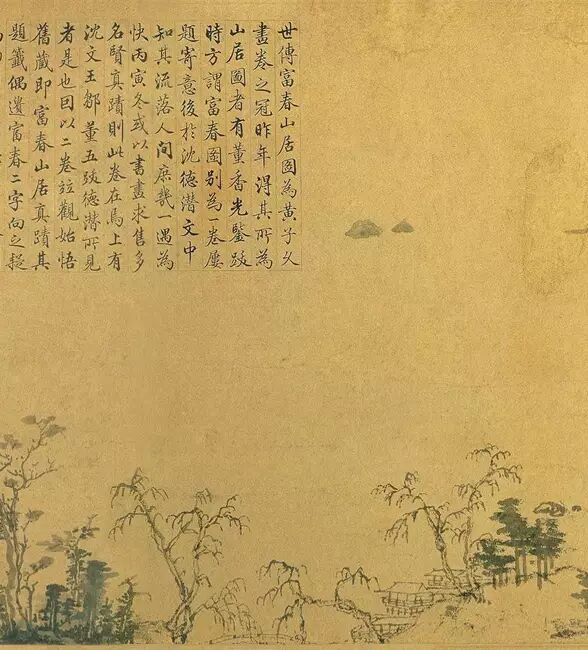 世傳富春山居圖為黃子久
畫卷之冠昨年得其所為
山居圖者有董香光鑒跋
時方謂富春圖別為一卷屢
題寄意後於沈德潛文中
知其流落人間庶幾一遇為
快丙寅冬或以書畫求售多
名賢真蹟則此卷在焉上有
沈文王鄒董五跋德潛所見
者是也囙以二卷竝觀始悟
舊藏即富春山居真蹟其
題籤偶遺富春二字向之疑